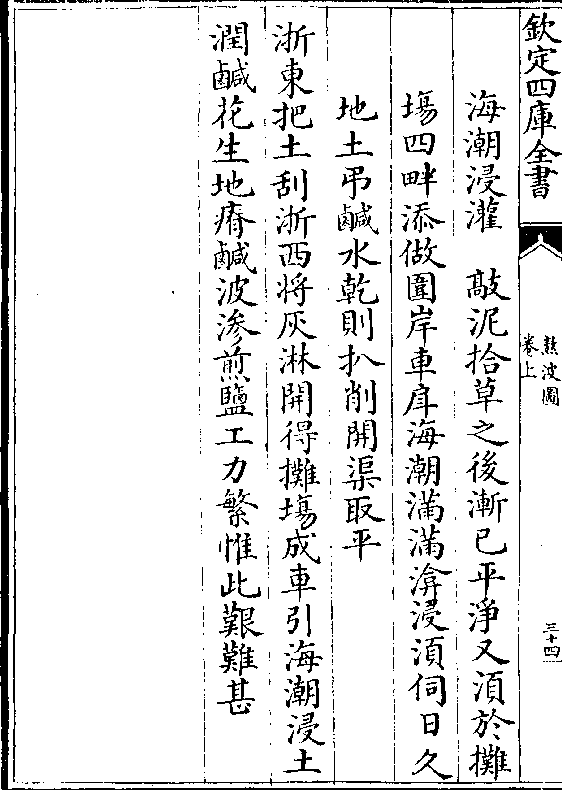 欽定四庫全書
熬波圖
卷上
三十四
海潮浸灌　敲泥拾草之後漸已平淨又湏於攤
塲四畔添做圍岸車戽海潮滿滿渰浸湏伺日久
地土弔鹹水乾則扒削開渠取平
浙東把土刮浙西將灰淋開得攤塲成車引海潮浸土
潤鹹花生地瘠鹹波渗煎鹽工力繁惟此艱難甚